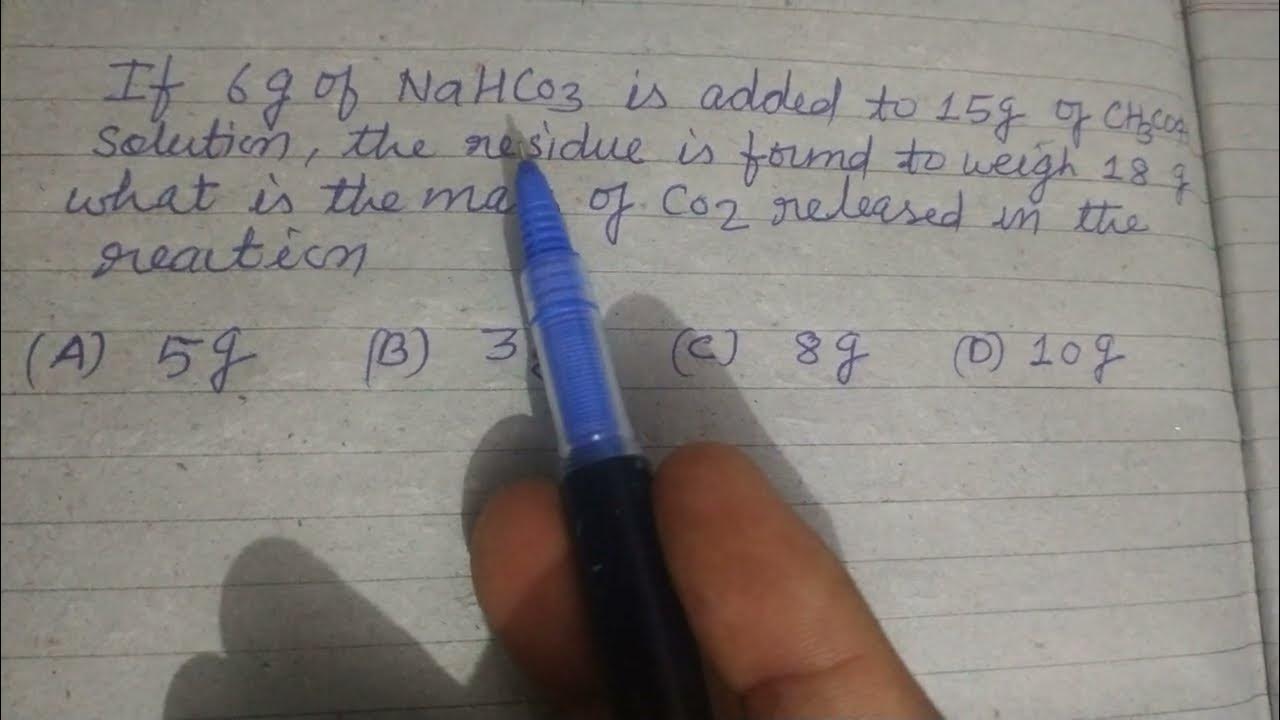 If 6g of NaHCo3 is added to 15g of
solution, the residue is found to weigh 18 g
what is the of Co2 released in the
reaction
(A) 5g (B) 3 (C) 8g (D) 10g